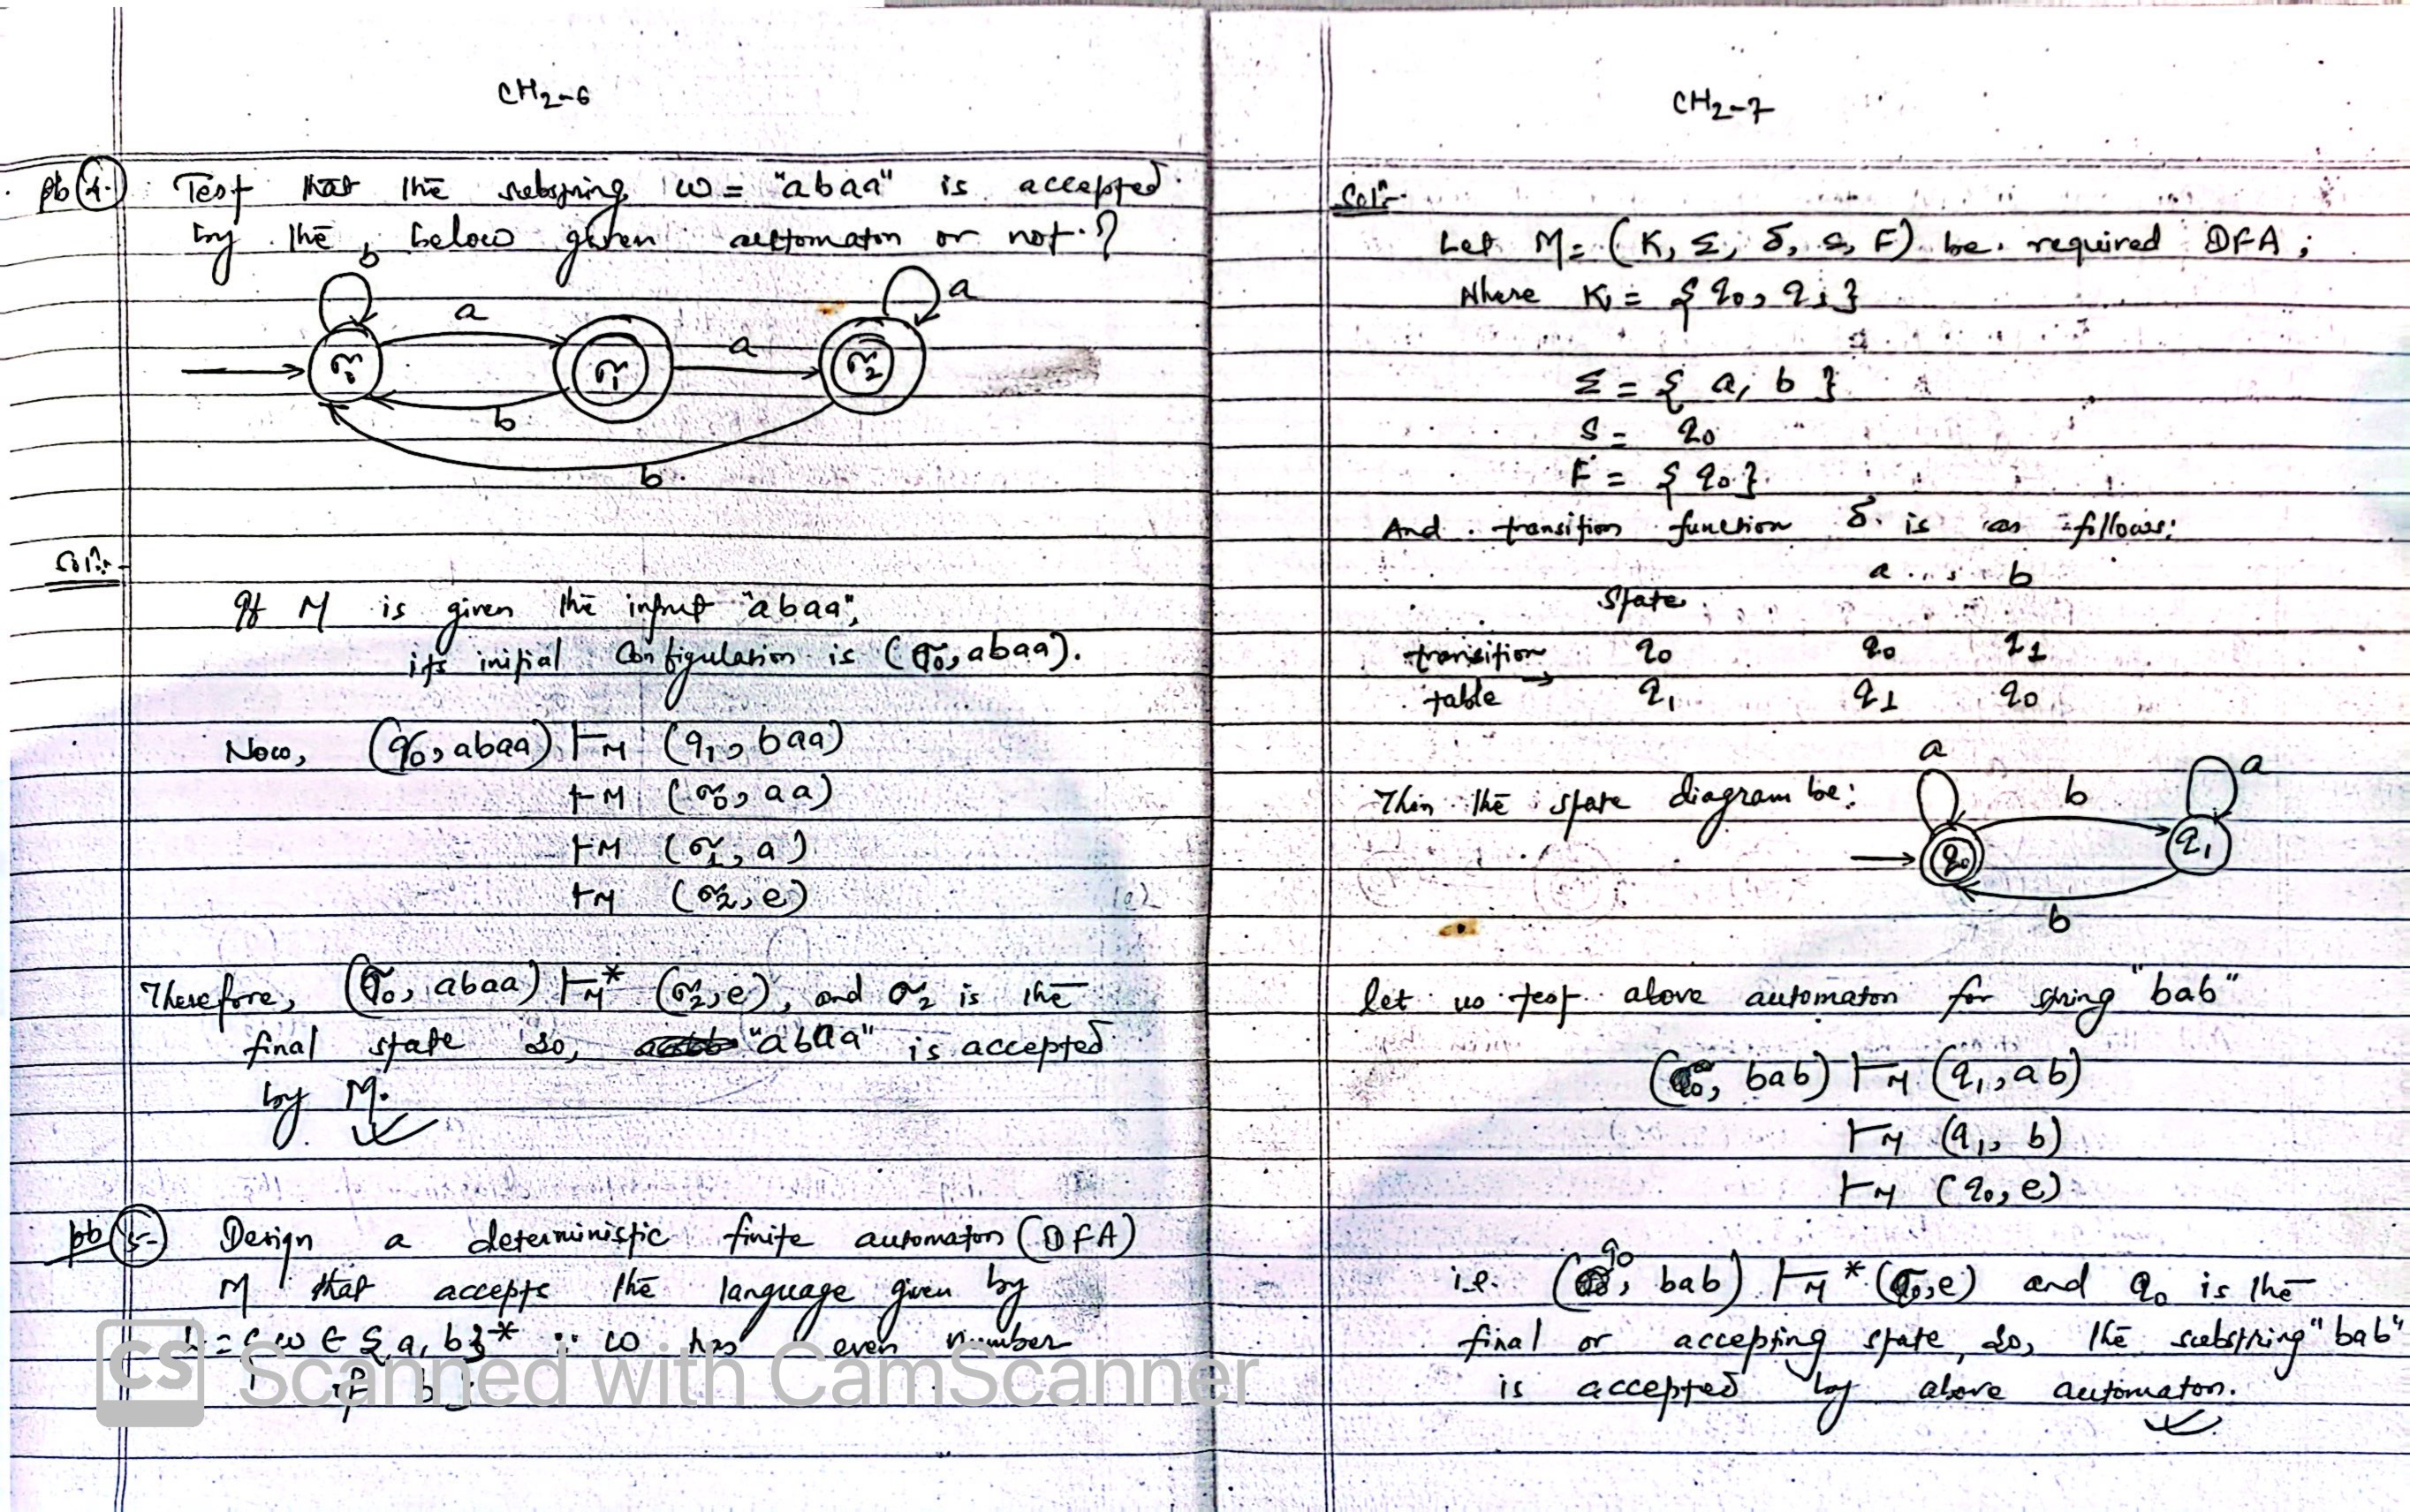 CH2-6
pb 4. Test that the substring w = "abaa" is accepted
by the below given automaton or not?
b
a
a
a
q0
q1
q2
b
b
Soln:-
If M is given the input "abaa",
its initial Configulation is (q0, abaa).
Now, (q0, abaa) ⊢M (q1, baa)
⊢M (q0, aa)
⊢M (q1, a)
⊢M (q2, e)
Therefore, (q0, abaa) ⊢M* (q2, e), and q2 is the
final state so, "abaa" is accepted
by M.
pb 5- Design a deterministic finite automaton (DFA)
M that accepts the language given by
L = { w ∈ {a, b}* : w has even number
of b }
CS Scanned with CamScanner
CH2-7
Soln:-
Let M = (K, Σ, δ, s, F) be required DFA;
Where K = {q0, q1}
Σ = { a, b }
S = q0
F = {q0}
And transition function δ is as follows:
a b
State
transition q0 q0 q1
table → q1 q1 q0
a
a
Then the state diagram be:
b
q0
q1
b
let us test above automaton for string "bab"
(q0, bab) ⊢M (q1, ab)
⊢M (q1, b)
⊢M (q0, e)
i.e. (q0, bab) ⊢M* (q0, e) and q0 is the
final or accepting state, so, the substring "bab"
is accepted by above automaton.